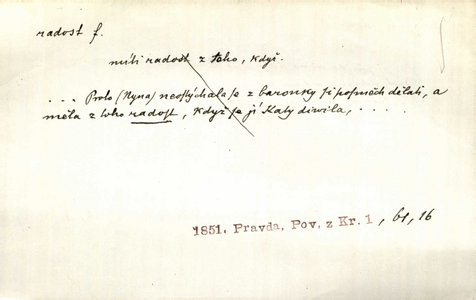 radost f.
míti radost z toho, když.
... Proto (Nyna) neostýchala se z baronky si posměch dělati, a
měla z toho radost, když se jí Katy diwila, ....
1851. Pravda, Pov. z Kr. 1, 61, 16